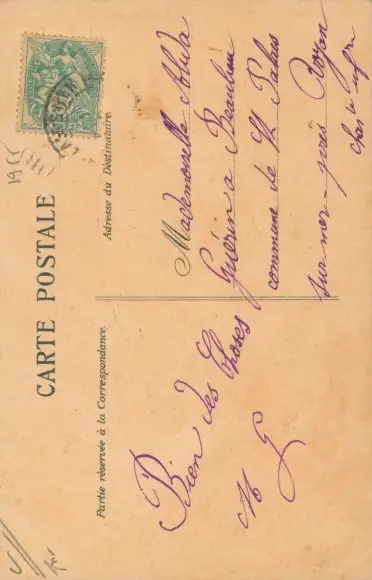 CARTE POSTALE
Partie réservée à la Correspondance.
Adresse du Destinataire.
Bien des Choses
M G
Mademoiselle Alida
Guérin a Beaulieu
commune de St Palais
sur mer près Royan